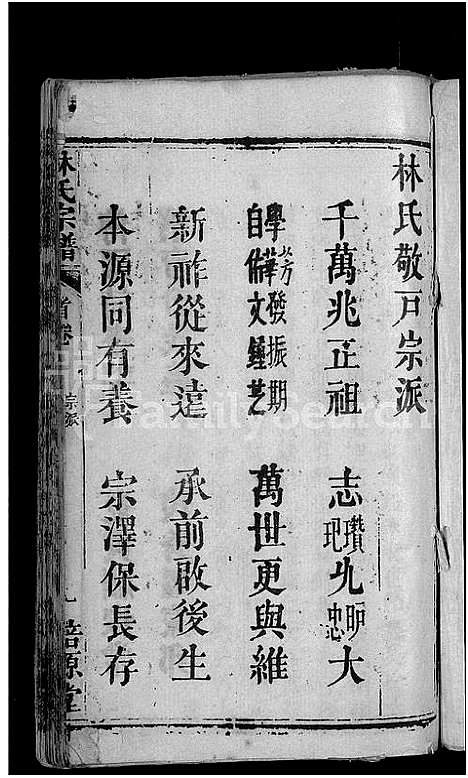 林氏敬戸宗派
千萬兆正祖 志瓚玘九昈忠大
學芳華發振期 自脩文鍾芝 萬世更與維
新祚從來遠 承前啟後生
本源同有養 宗澤保長存
林氏宗譜 首卷 宗派 培源堂
FamilySearch